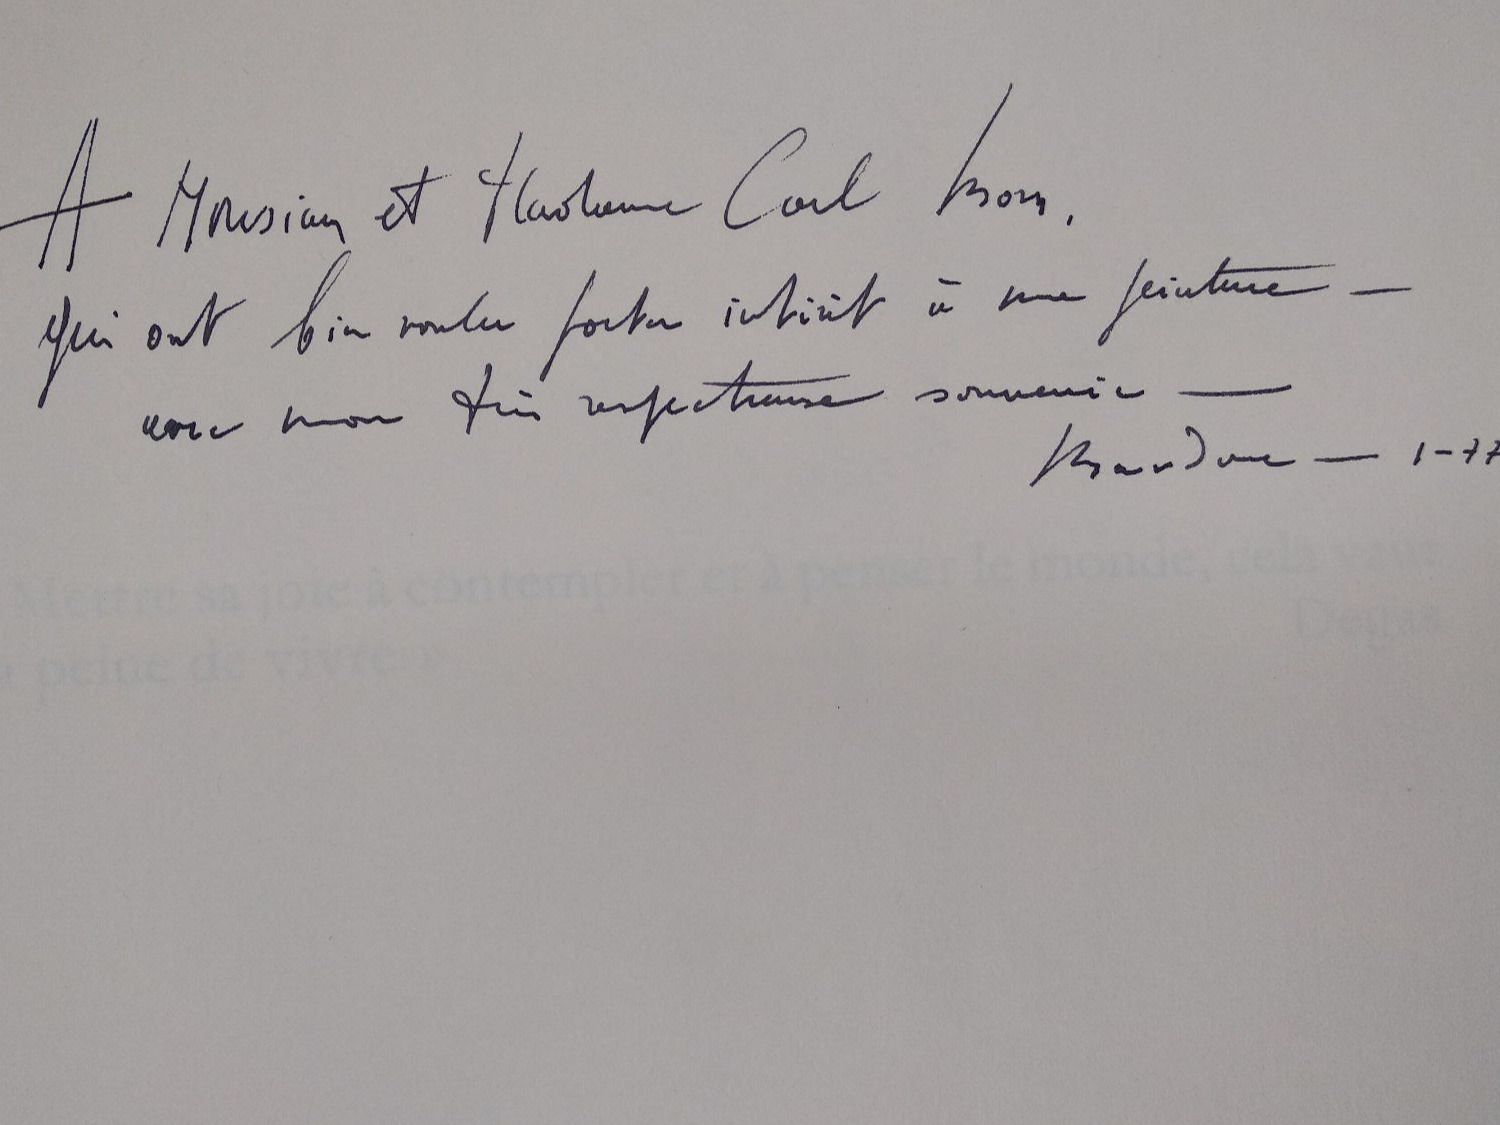 A Monsieur et Madame Carl
qui ont bien voulu porter intérêt à ma peinture —
avec mon très respectueuse souvenir —
— 1-77
Mettre sa joie à contempler et à penser le monde, cela vaut
peine de vivre » Degas